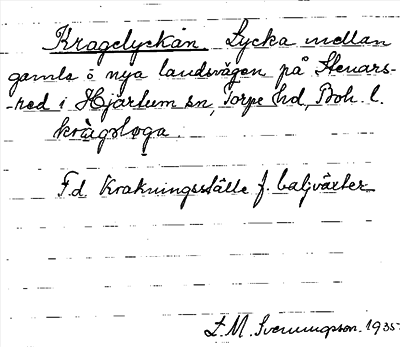 Kragelyckan. Lycka mellan
gamla o nya landsvägen på Stenars-
-red i Hjärtum sn, Torpe hd, Boh. l.
kràgəløga.
F.d. Krakningsställe f. baljväxter
L. M. Svenungsson. 1935